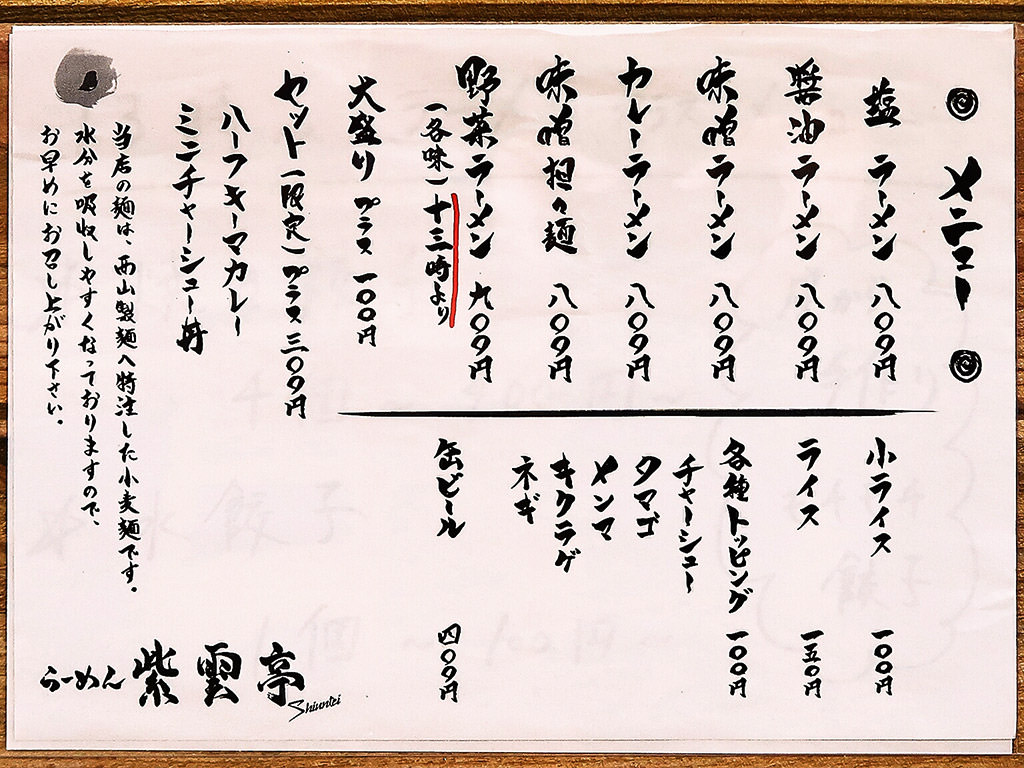 メニュー
塩ラーメン 八〇〇円
醤油ラーメン 八〇〇円
味噌ラーメン 八〇〇円
カレーラーメン 八〇〇円
味噌担々麺 八〇〇円
野菜ラーメン 九〇〇円
（各味）十三時より
大盛り プラス 一〇〇円
セット（限定）プラス 三〇〇円
ハーフキーマカレー
ミニチャーシュー丼
小ライス 一〇〇円
ライス 一五〇円
各種トッピング 一〇〇円
チャーシュー
タマゴ
メンマ
キクラゲ
ネギ
缶ビール 四〇〇円
当店の麺は、西山製麺へ特注した小麦麺です。
水分を吸収しやすくなっておりますので、
お早めにお召し上がり下さい。
らーめん 紫雲亭
Shiuntei